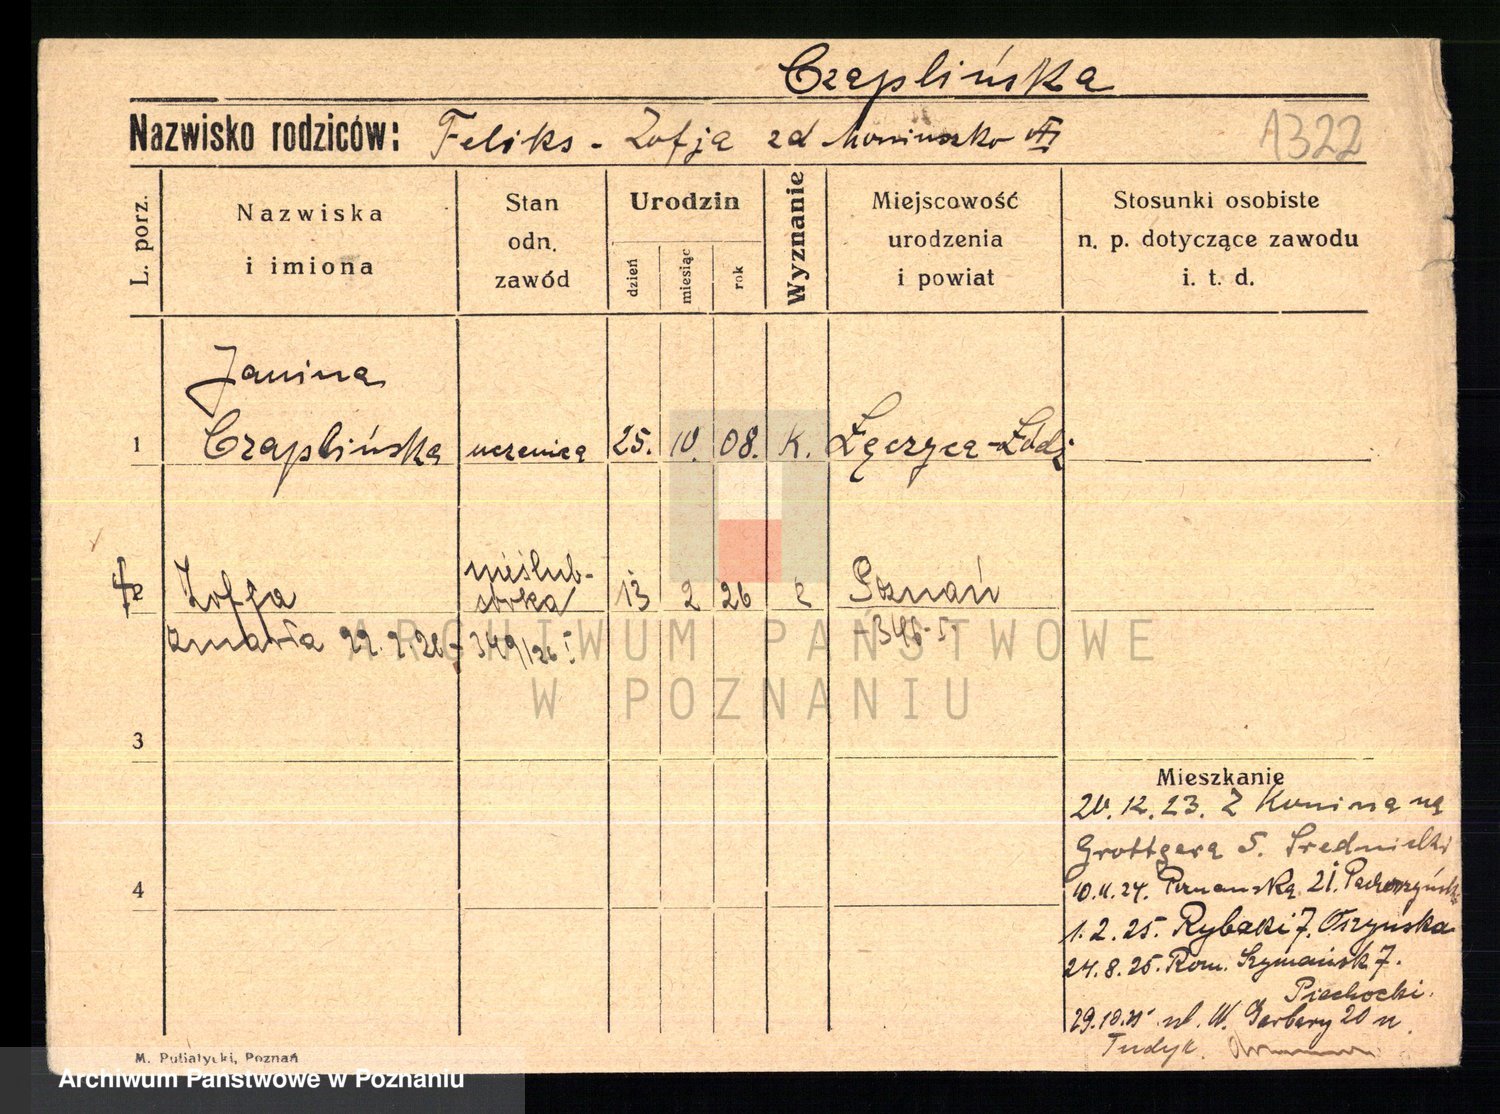 Czaplińska
Nazwisko rodziców: Feliks - Zofja zd Moniuszko
A322
L. porz.
Nazwiska
i imiona
Stan
odn.
zawód
Urodzin
dzień
miesiąc
rok
Wyznanie
Miejscowość
urodzenia
i powiat
Stosunki osobiste
n. p. dotyczące zawodu
i. t. d.
Janina
1 Czaplińska uczenica 25. 10. 08. K. Łęczyca-Łódź
nieślub-
2 Zofja córka 13 2 26 Poznań
zmarła 22. 2. 26 - 349/26 I
346
ARCHIWUM PAŃSTWOWE
W POZNANIU
3
Mieszkanie
20.12.23. Z Konina na
Grottgera 5. Średnielki
4
10.11.24. Poznańska 21.
1.2.25. Rybaki 7. Oszyńska
24.8.25. Rom. Szymańsk 7.
Piechocki.
29.10.25 ul. W. Garbary 20 n.
Tudyk.
M. Putiatycki, Poznań
Archiwum Państwowe w Poznaniu